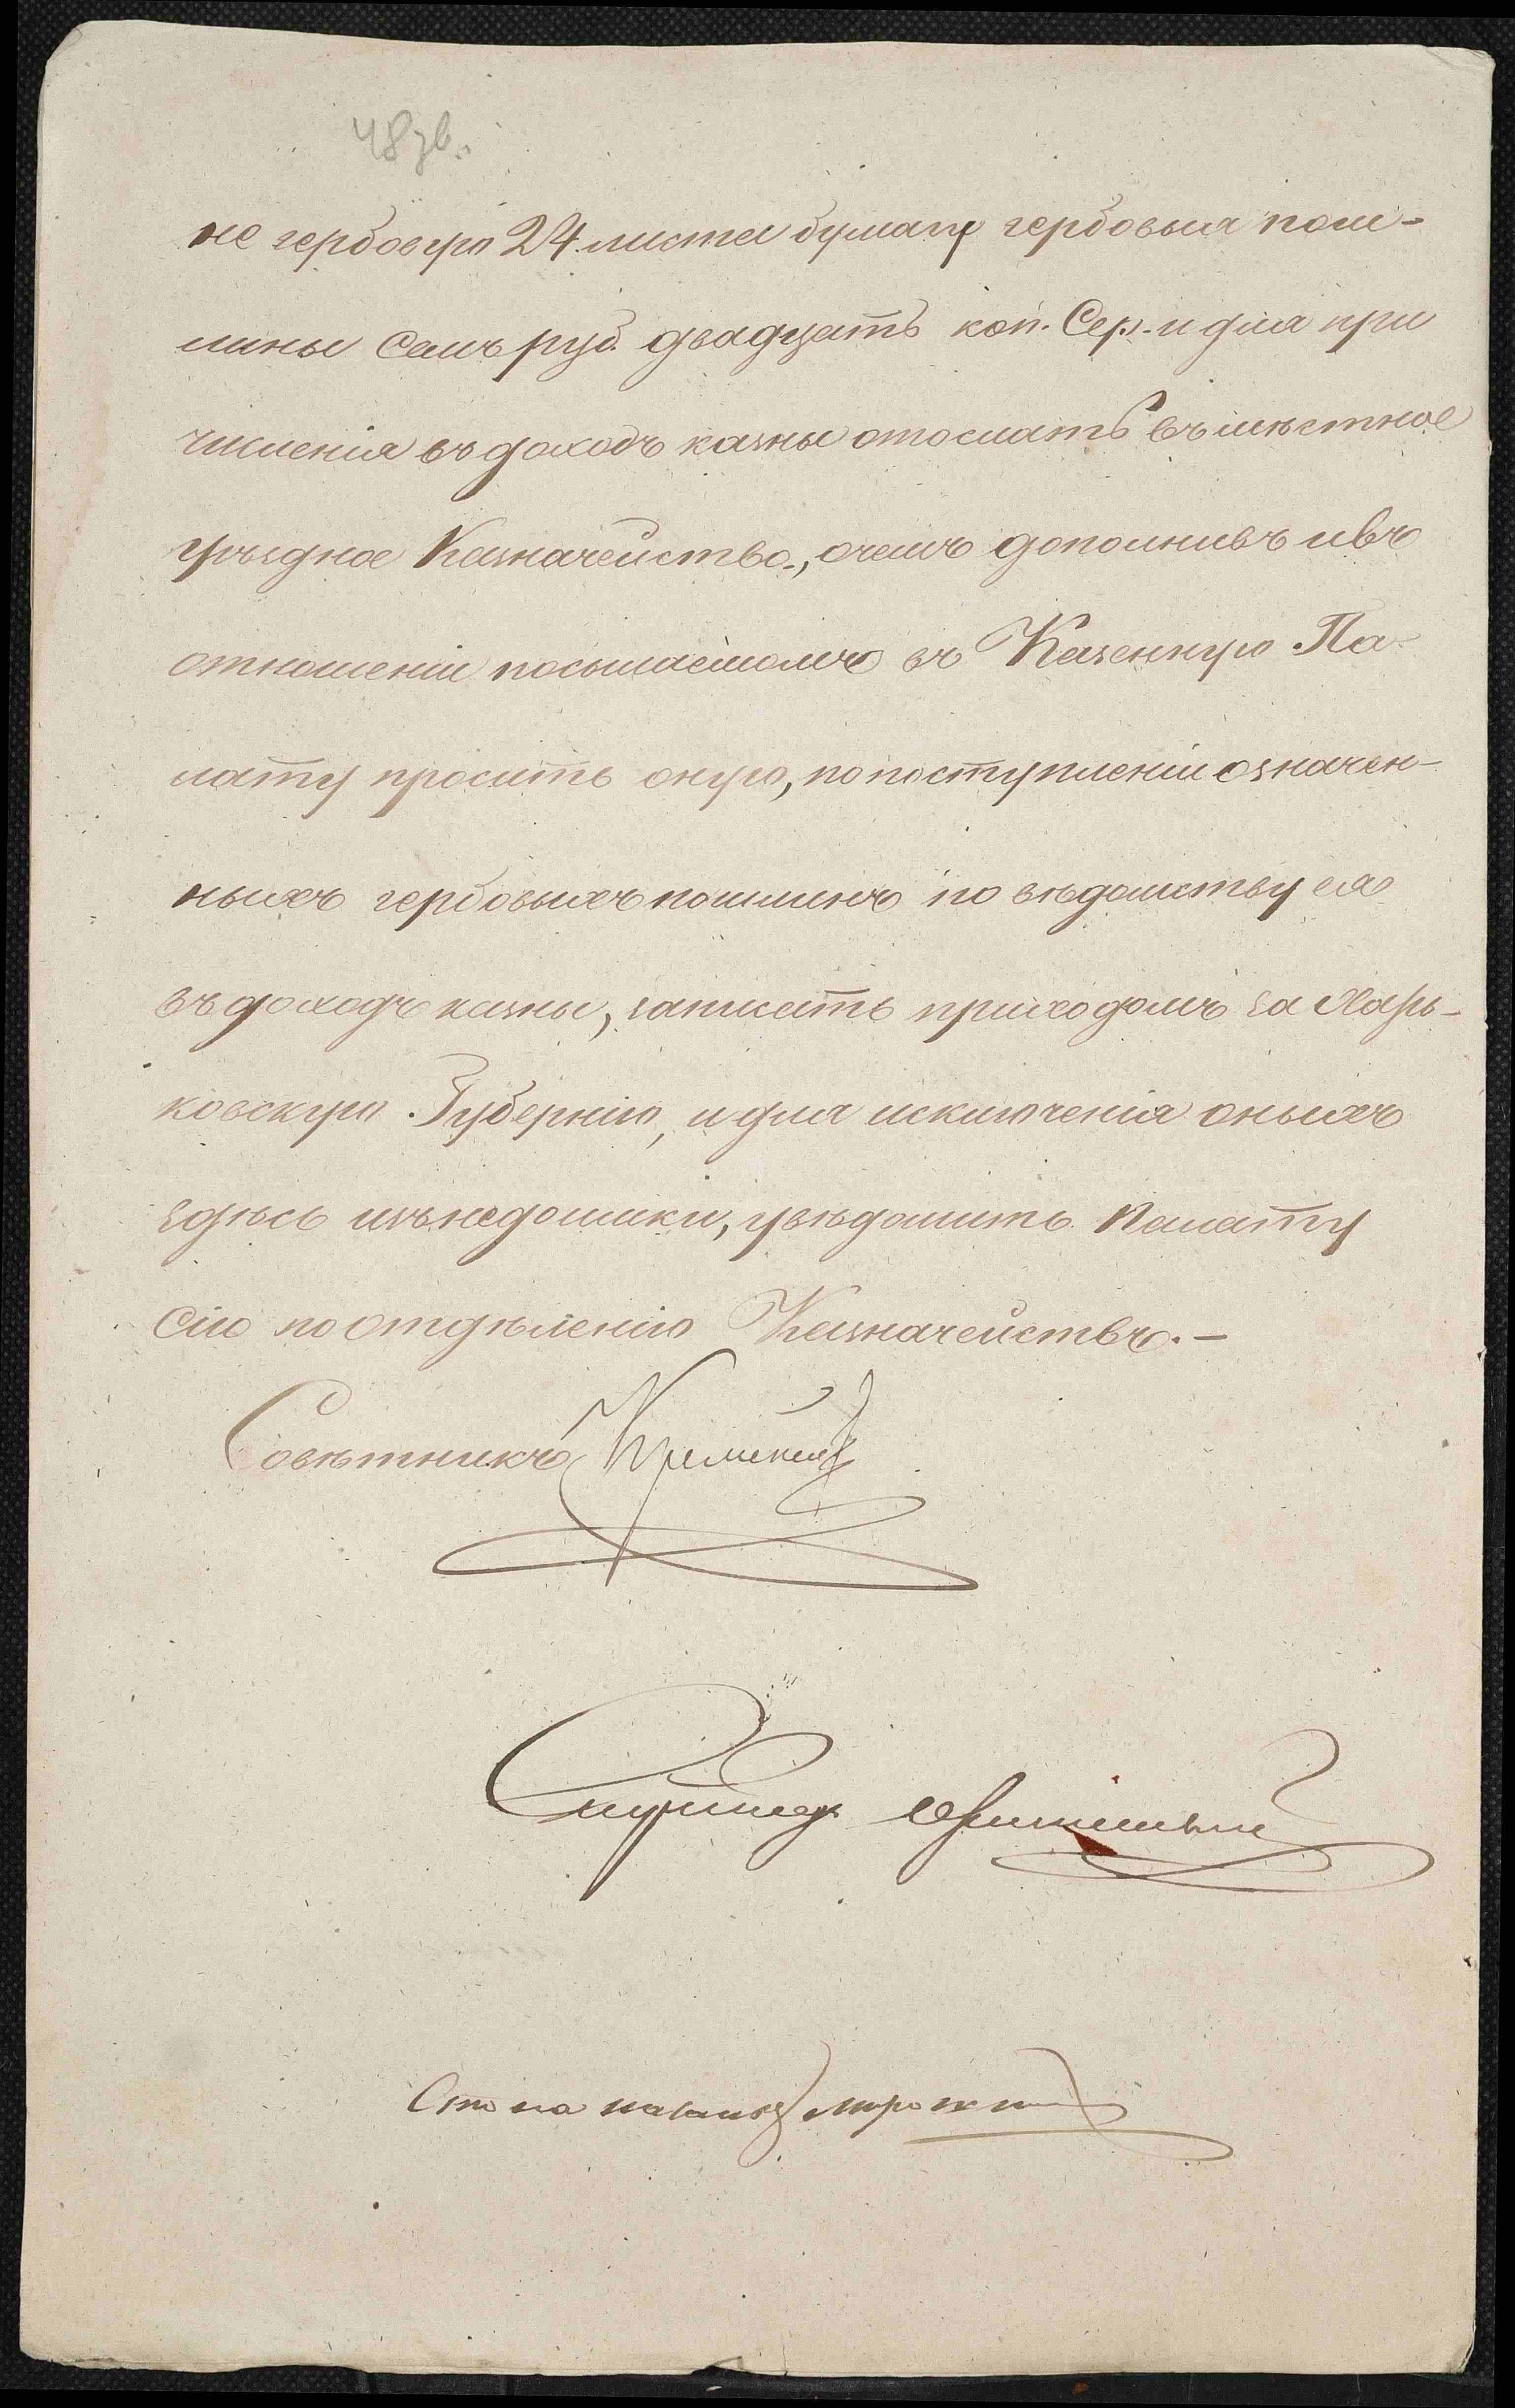 48 зв.
не гербовую 24 листа бумагу гербовыя пош-
лины семь руб. двадцать коп. Сер. и для при
численія въ доходъ казны отослать въ мѣстное
уѣздное Казначейство, о чемъ дополнивъ и въ
отношеніи посылаемомъ въ Казенную Па-
лату просить оную, по поступленіи означен-
ныхъ гербовыхъ пошлинъ по вѣдомству ея
въ доходъ казны, записать приходомъ за Харь-
ковскую Губернію, и для исключенія оныхъ
здѣсь изъ недоимки, увѣдомить Палату
сію по отдѣленію Казначействъ.—
Совѣтникъ
Столоначальн